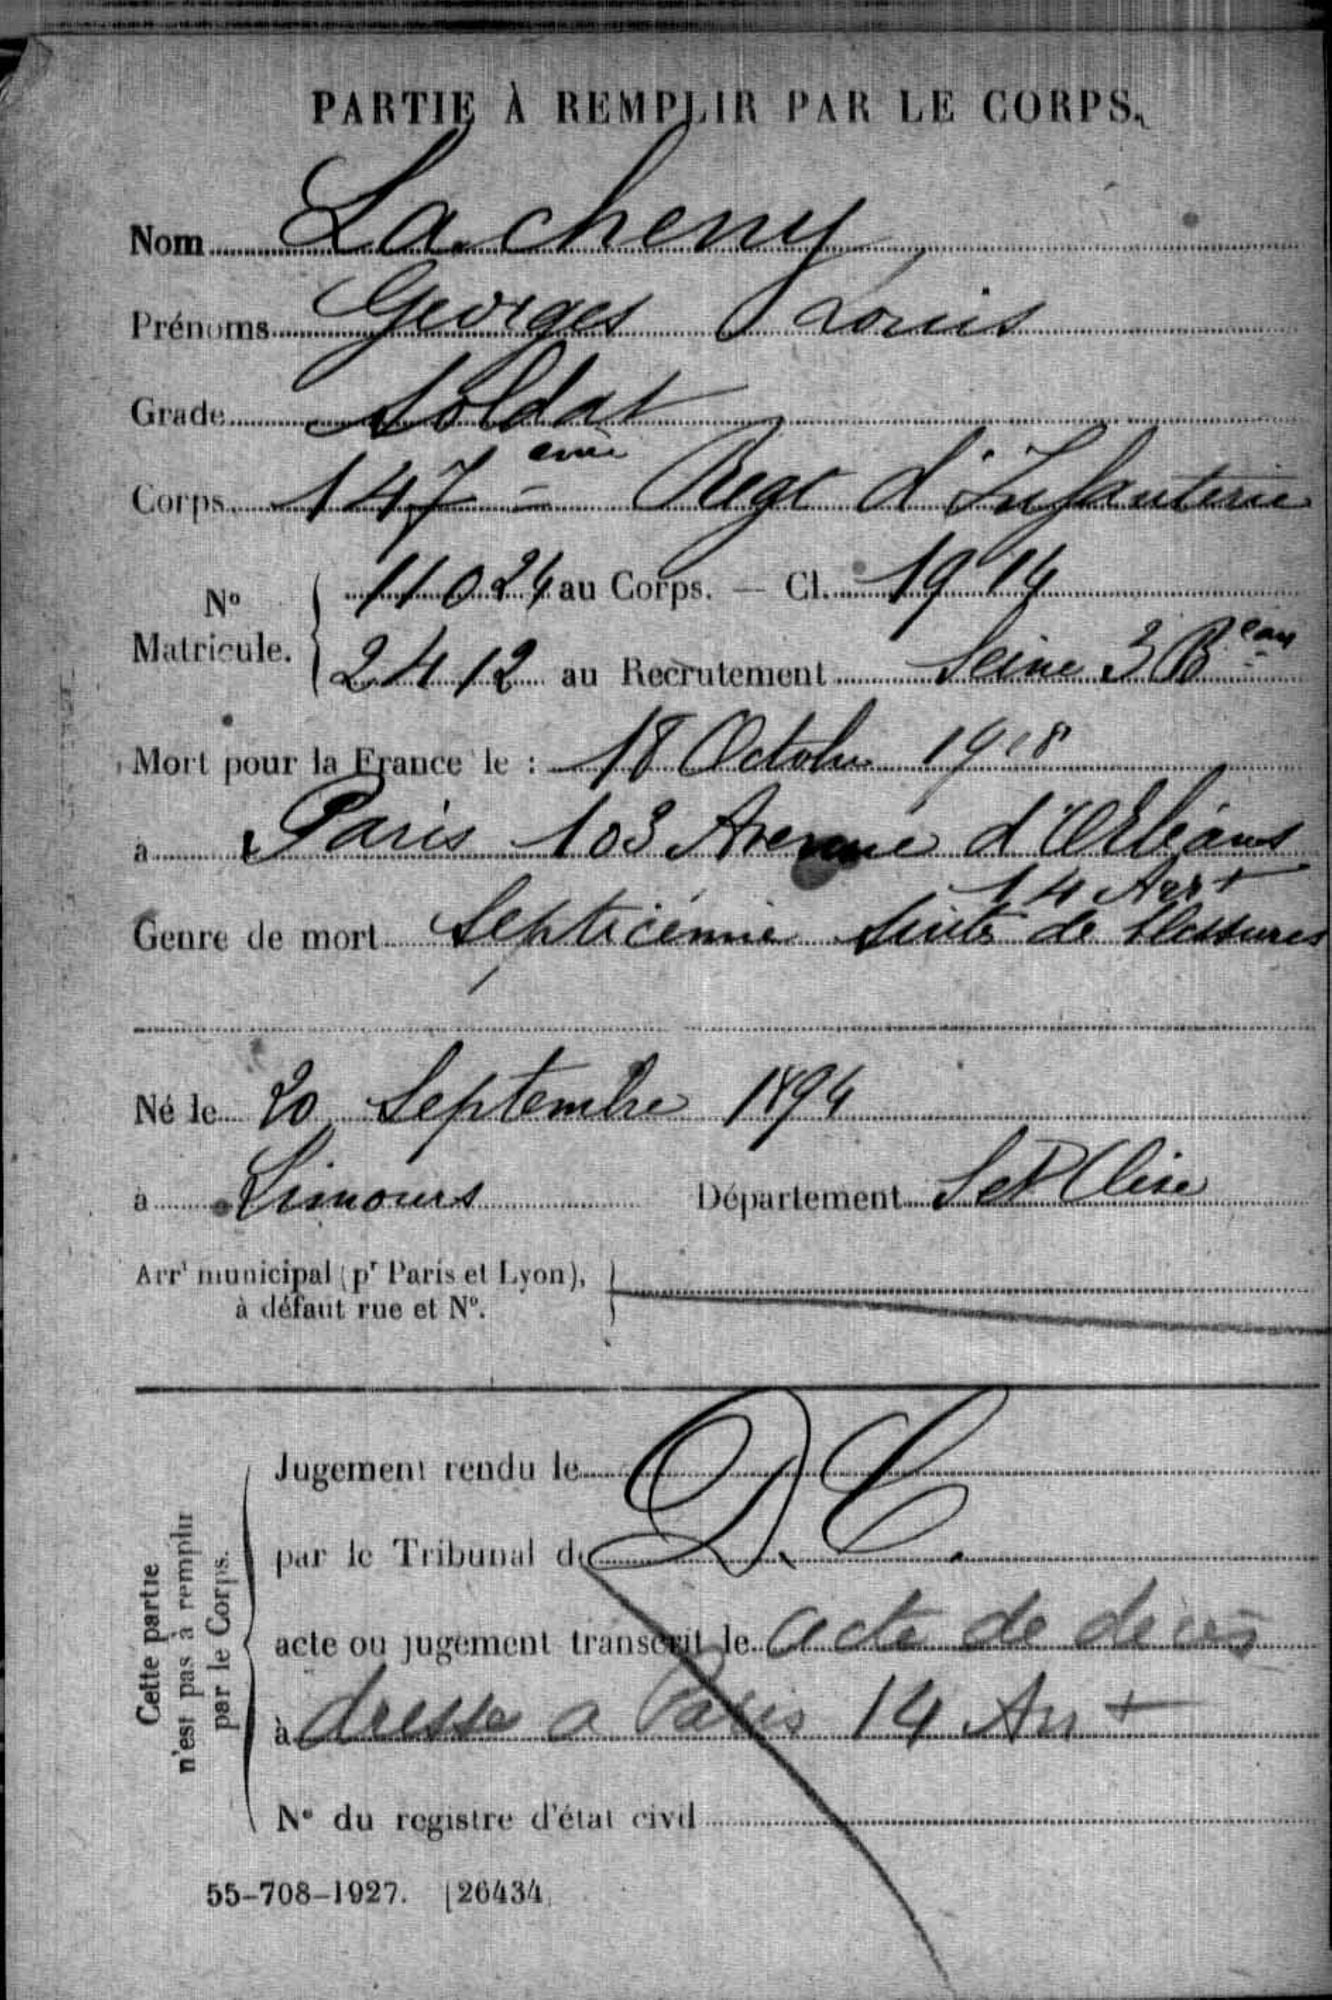 PARTIE À REMPLIR PAR LE CORPS.
Nom Lacheny
Prénoms Georges Louis
Grade Soldat
Corps 147 eme Regt d'Infanterie
N° Matricule. 11024 au Corps. — Cl. 1914
2412 au Recrutement Seine 3 Beau
Mort pour la France le : 18 Octobre 1918
à Paris 103 Avenue d'Orléans
14 Arrt
Genre de mort Septicémie suite de blessures
Né le 20 Septembre 1894
à Limours Département Set Oise
Arrt municipal (pr Paris et Lyon),
à défaut rue et N°.
Cette partie
n'est pas à remplir
par le Corps.
Jugement rendu le D.C.
par le Tribunal de
acte ou jugement transcrit le acte de décès
à dresse a Paris 14 Arrt
N° du registre d'état civil
55-708-1927. [26434.